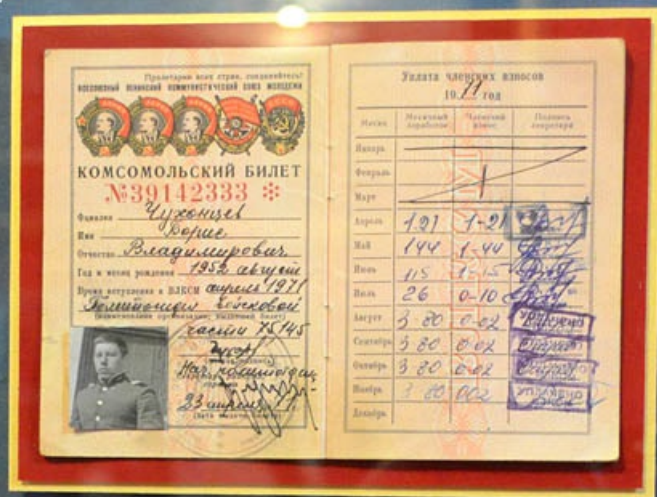 Пролетарии всех стран, соединяйтесь!
ВСЕСОЮЗНЫЙ ЛЕНИНСКИЙ КОММУНИСТИЧЕСКИЙ СОЮЗ МОЛОДЕЖИ
КОМСОМОЛЬСКИЙ БИЛЕТ
№39142333
Фамилия Чухонцев
Имя Борис
Отчество Владимирович
Год и месяц рождения 1952 август
Время вступления в ВЛКСМ апрель 1971
Политотдел войсковой
(наименование организации, выдавшей билет)
части 75145
Нач. политотдела
23 апреля 71 г.
(дата выдачи билета)
Уплата членских взносов
1971 год
Месяц Месячный заработок Членский взнос Подпись секретаря
Январь
Февраль
Март
Апрель 1-21
Май 144 1-44
Июнь 115 1-15
Июль 26 0-10
Август 3-80 0-02 УПЛАЧЕНО
Сентябрь 3 80 0-02
Октябрь 3 80 0-02
Ноябрь 3 80 002 УПЛАЧЕНО
Декабрь